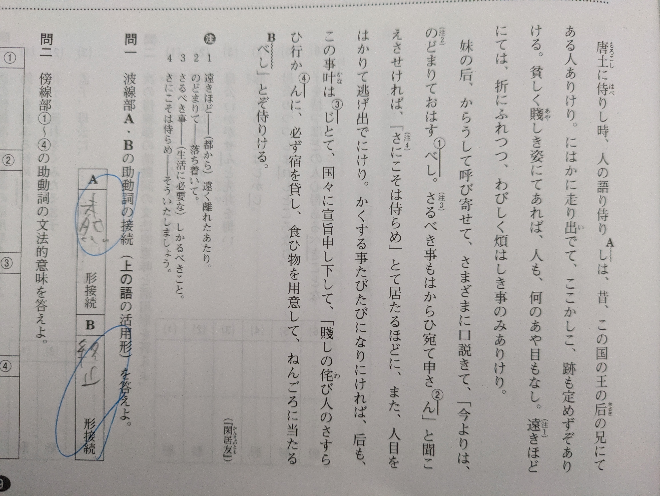 唐土に侍りし時、人の語り侍りAしは、昔、この国の王の后の兄にて
ある人ありけり。にはかに走り出でて、ここかしこ、跡も定めずぞあり
ける。貧しく賤しき姿にてあれば、人も、何のあや目もなし。遠きほど
にては、折にふれつつ、わびしく煩はしき事のみありけり。
妹の后、からうして呼び寄せて、さまざまに口説きて、「今よりは、
のどまりておはす①べし。さるべき事もはからひ宛て申さ②ん」と聞こ
えさせければ、「さにこそは侍らめ」とて居たるほどに、また、人目を
はかりて逃げ出でにけり。かくする事たびたびになりにければ、后も、
この事叶は③じとて、国々に宣旨申し下して、「賤しの侘び人のさすら
ひ行か④んに、必ず宿を貸し、食ひ物を用意して、ねんごろに当たる
Bべし」とぞ侍りける。
(『閑居友』)
注 1 遠きほど――(都から)遠く離れたあたり。
2 のどまりて――落ち着いて。
3 さるべき事――(生活に必要な)しかるべきこと。
4 さにこそは侍らめ――そういたしましょう。
問一 波線部A・Bの助動詞の接続(上の語の活用形)を答えよ。
A 形接続 B 形接続
問二 傍線部①~④の助動詞の文法的意味を答えよ。
① ② ③ ④